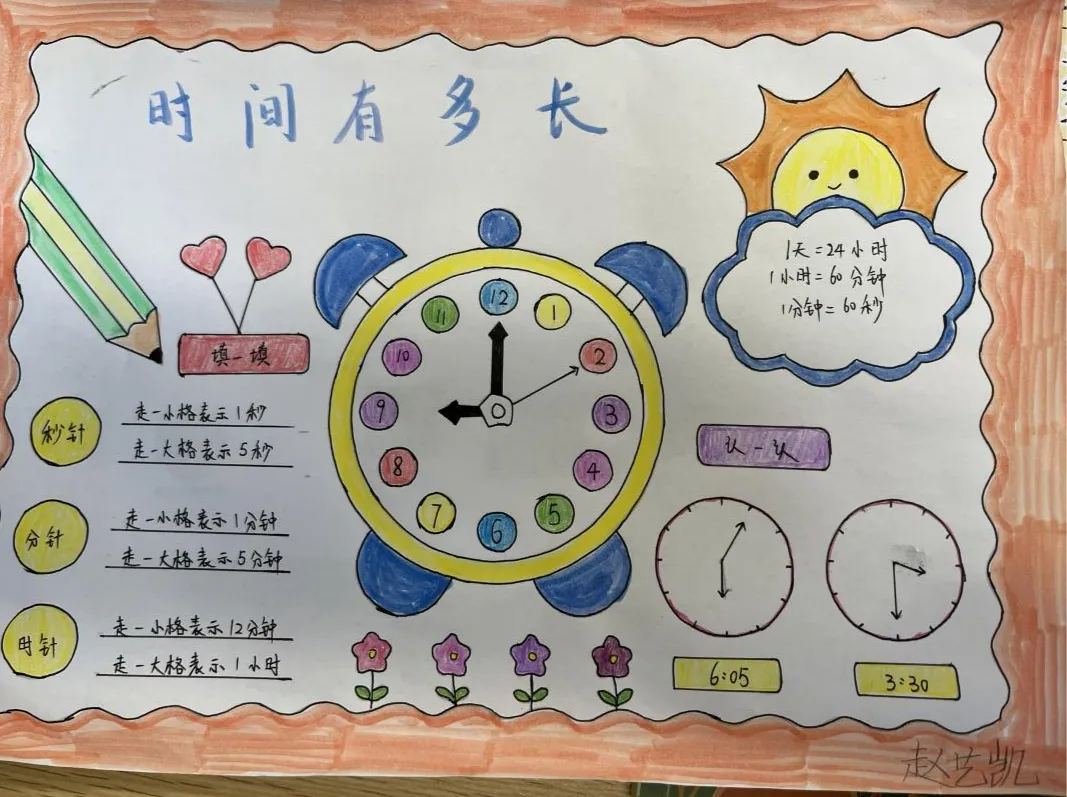 时间有多长
1天=24小时
1小时=60分钟
1分钟=60秒
填一填
秒针
走一小格表示1秒
走一大格表示5秒
分针
走一小格表示1分钟
走一大格表示5分钟
时针
走一小格表示12分钟
走一大格表示1小时
12
1
2
3
4
5
6
7
8
9
10
11
认一认
6:05
3:30
赵艺凯